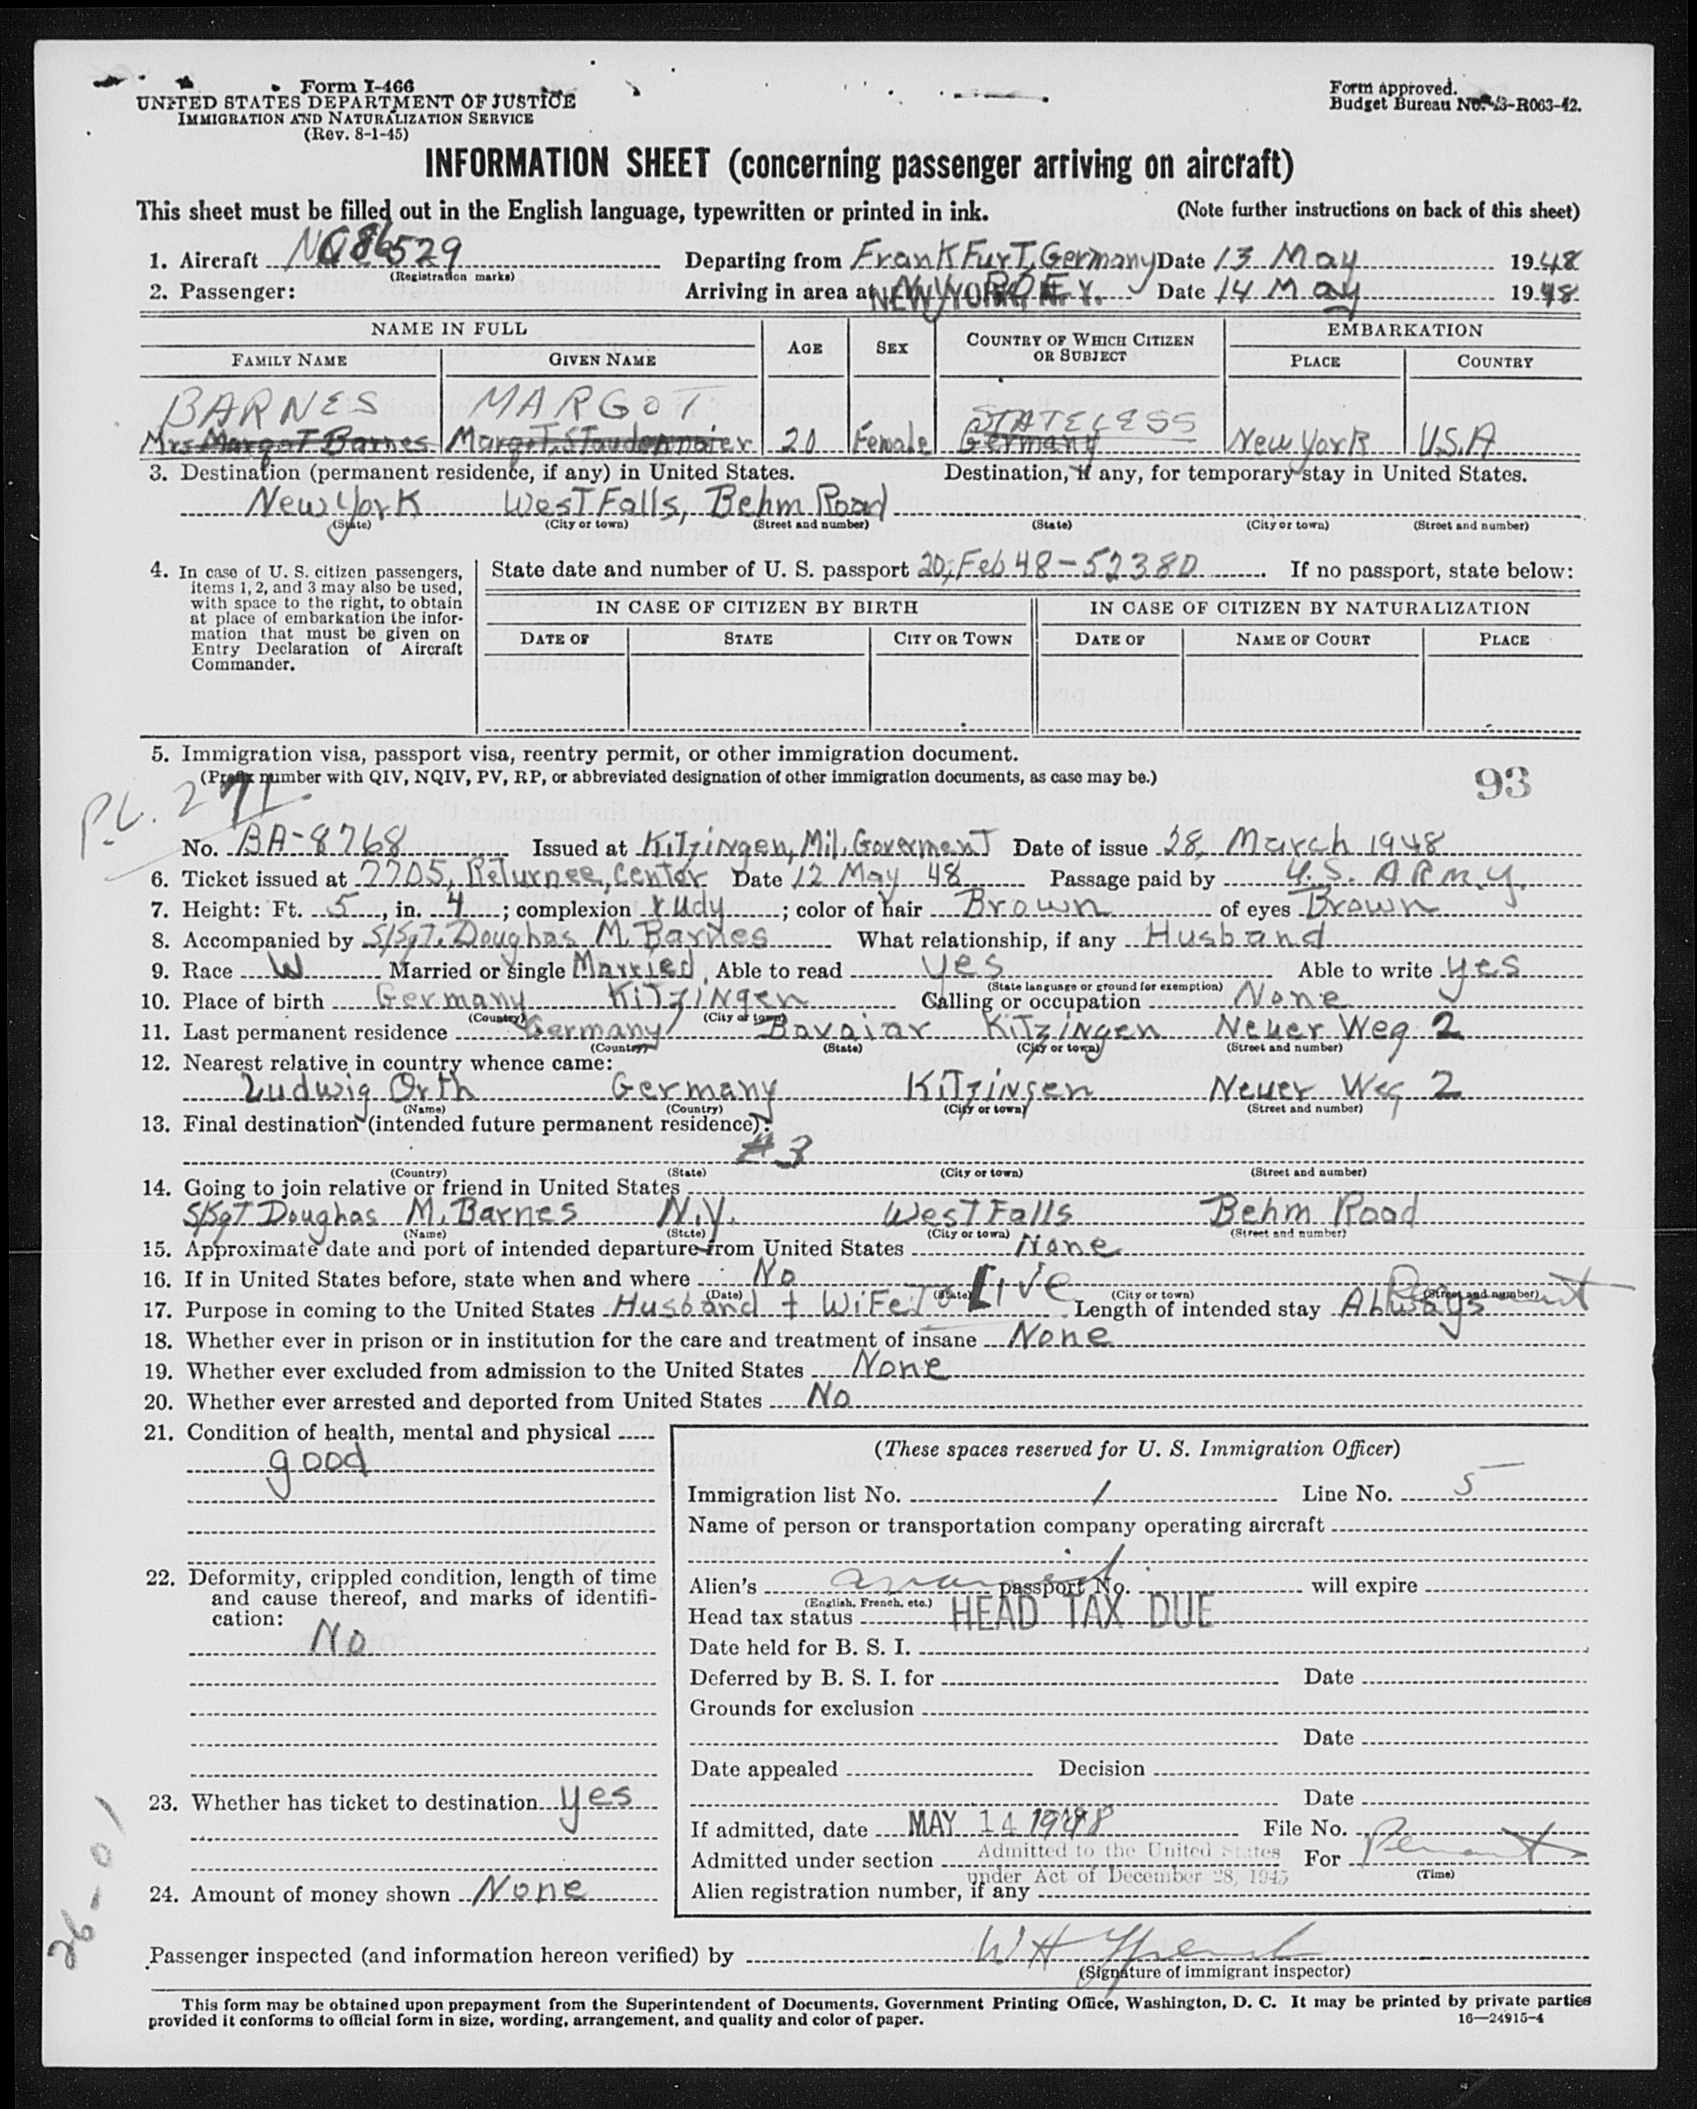 Form I-466
UNITED STATES DEPARTMENT OF JUSTICE
IMMIGRATION AND NATURALIZATION SERVICE
(Rev. 8-1-45)
Form approved.
Budget Bureau No. 43-R063-42.
INFORMATION SHEET (concerning passenger arriving on aircraft)
This sheet must be filled out in the English language, typewritten or printed in ink. (Note further instructions on back of this sheet)
1. Aircraft NC86529 Departing from FrankFurT, Germany Date 13 May 1948
(Registration marks)
2. Passenger: Arriving in area at NEW YORK, N. Y. Date 14 May 1948
NAME IN FULL AGE SEX COUNTRY OF WHICH CITIZEN OR SUBJECT EMBARKATION
FAMILY NAME GIVEN NAME PLACE COUNTRY
BARNES MARGOT STATELESS
Mrs MargoT Barnes MargoT, Staudenmaier 20 Female Germany New York U.S.A
3. Destination (permanent residence, if any) in United States. Destination, if any, for temporary stay in United States.
New York WesT Falls, Behm Road
(State) (City or town) (Street and number) (State) (City or town) (Street and number)
4. In case of U. S. citizen passengers, items 1, 2, and 3 may also be used, with space to the right, to obtain at place of embarkation the information that must be given on Entry Declaration of Aircraft Commander.
State date and number of U. S. passport 20, Feb 48 - 5238D If no passport, state below:
IN CASE OF CITIZEN BY BIRTH IN CASE OF CITIZEN BY NATURALIZATION
DATE OF STATE CITY OR TOWN DATE OF NAME OF COURT PLACE
5. Immigration visa, passport visa, reentry permit, or other immigration document.
(Prefix number with QIV, NQIV, PV, RP, or abbreviated designation of other immigration documents, as case may be.)
93
P.L. 271
No. BA-8768 Issued at KiTzingen, Mil. GovermenT Date of issue 28, March 1948
6. Ticket issued at 7705, ReTurnee, Center Date 12 May 48 Passage paid by U.S. ARmy.
7. Height: Ft. 5, in. 4; complexion rudy; color of hair Brown of eyes Brown
8. Accompanied by S/SgT. Doughas M. Barnes What relationship, if any Husband
9. Race W Married or single Married Able to read yes Able to write yes
(State language or ground for exemption)
10. Place of birth Germany KiTzingen Calling or occupation None
(Country) (City or town)
11. Last permanent residence Germany Bavaiar KiTzingen Neuer Weg 2
(Country) (State) (City or town) (Street and number)
12. Nearest relative in country whence came:
Ludwig Orth Germany KiTzingen Neuer Weg 2
(Name) (Country) (City or town) (Street and number)
13. Final destination (intended future permanent residence):
# 3
(Country) (State) (City or town) (Street and number)
14. Going to join relative or friend in United States
S/SgT Doughas M. Barnes N.Y. WesT Falls Behm Road
(Name) (State) (City or town) (Street and number)
15. Approximate date and port of intended departure from United States None
16. If in United States before, state when and where No
(Date) (State) (City or town) (Street and number)
17. Purpose in coming to the United States Husband + WiFe To Live Length of intended stay Always
18. Whether ever in prison or in institution for the care and treatment of insane None
19. Whether ever excluded from admission to the United States None
20. Whether ever arrested and deported from United States No
21. Condition of health, mental and physical
good
22. Deformity, crippled condition, length of time and cause thereof, and marks of identification:
No
23. Whether has ticket to destination yes
24. Amount of money shown None
26-01
(These spaces reserved for U. S. Immigration Officer)
Immigration list No. 1 Line No. 5
Name of person or transportation company operating aircraft
Alien's passport No. will expire
(English, French, etc.)
Head tax status HEAD TAX DUE
Date held for B. S. I.
Deferred by B. S. I. for Date
Grounds for exclusion
Date
Date appealed Decision
Date
If admitted, date MAY 14 1948 File No.
Admitted under section Admitted to the United States For
under Act of December 28, 1945 (Time)
Alien registration number, if any
Passenger inspected (and information hereon verified) by
(Signature of immigrant inspector)
This form may be obtained upon prepayment from the Superintendent of Documents, Government Printing Office, Washington, D. C. It may be printed by private parties
provided it conforms to official form in size, wording, arrangement, and quality and color of paper. 16—24915-4